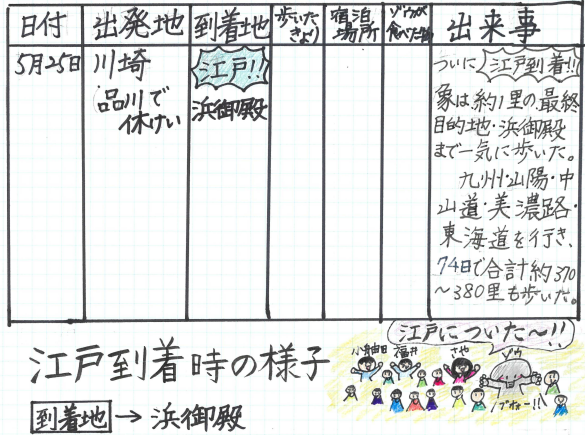 日付
出発地
到着地
歩いた
きょり
宿泊
場所
ゾウが
食べた物
出来事
5月25日
川崎
品川で
休けい
江戸!!
浜御殿
ついに江戸到着!!
象は約1里の最終
目的地・浜御殿
まで一気に歩いた。
九州・山陽・中
山道・美濃路・
東海道を行き、
74日で合計約370
〜380里も歩いた。
江戸についた〜!!
江戸到着時の様子
小舟田
福井
さや
ゾウ
ブオー!!
到着地→浜御殿